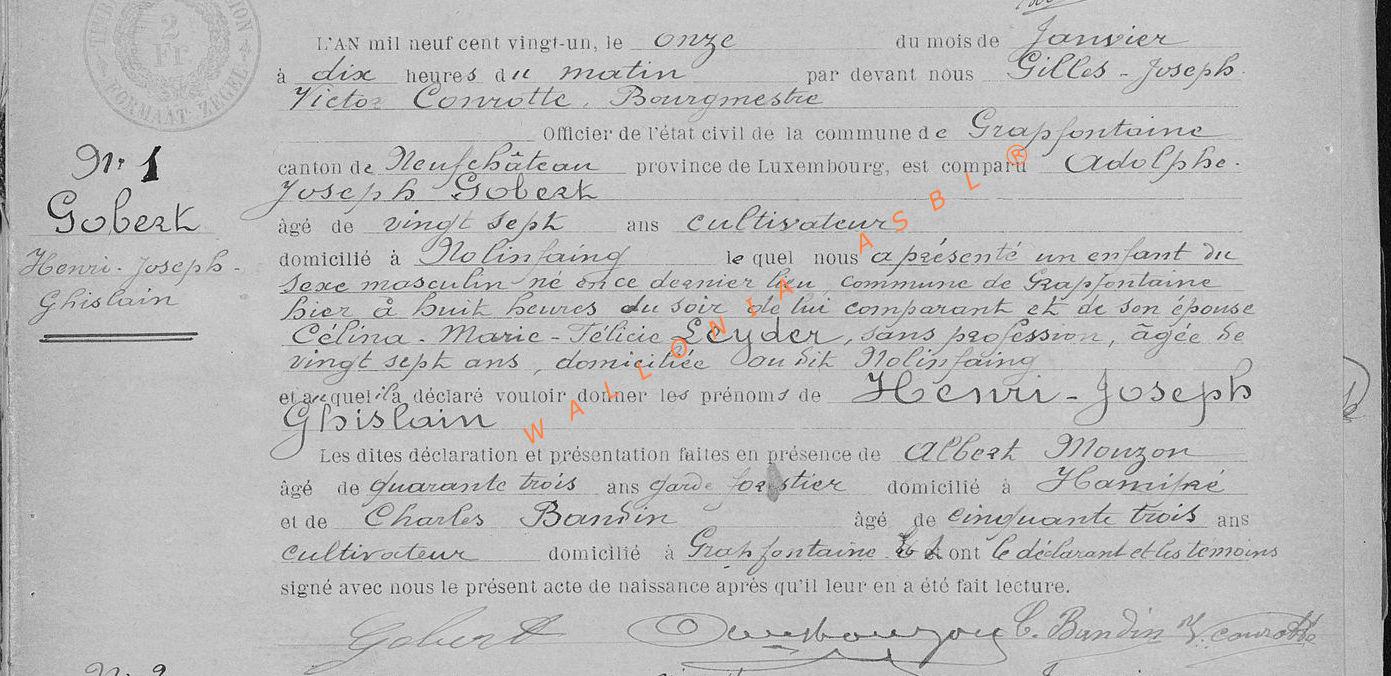 2
Fr
FORMAAT ZEGEL
L'AN mil neuf cent vingt-un, le onze du mois de Janvier
à dix heures du matin par devant nous Gilles-Joseph-
Victor Conrotte, Bourgmestre
Officier de l'état civil de la commune de Grapfontaine
canton de Neufchâteau province de Luxembourg, est comparu Adolphe-
Joseph Gobert
âgé de vingt sept ans cultivateur
domicilié à Nolinfaing lequel nous a présenté un enfant du
sexe masculin né en ce dernier lieu, commune de Grapfontaine
hier à huit heures du soir de lui comparant et de son épouse
Célina-Marie-Félicie Leyder, sans profession, âgée de
vingt sept ans, domiciliée au dit Nolinfaing
et auquel il a déclaré vouloir donner les prénoms de Henri-Joseph
Ghislain
Les dites déclaration et présentation faites en présence de Albert Mouzon
âgé de quarante trois ans garde forestier domicilié à Hamipré
et de Charles Bandin âgé de cinquante trois ans
cultivateur domicilié à Grapfontaine Et ont le déclarant et les témoins
signé avec nous le présent acte de naissance après qu'il leur en a été fait lecture.
Gobert C. Bandin V. Conrotte
No 1
Gobert
Henri-Joseph-
Ghislain
No 2
WALLONIA ASBL ®